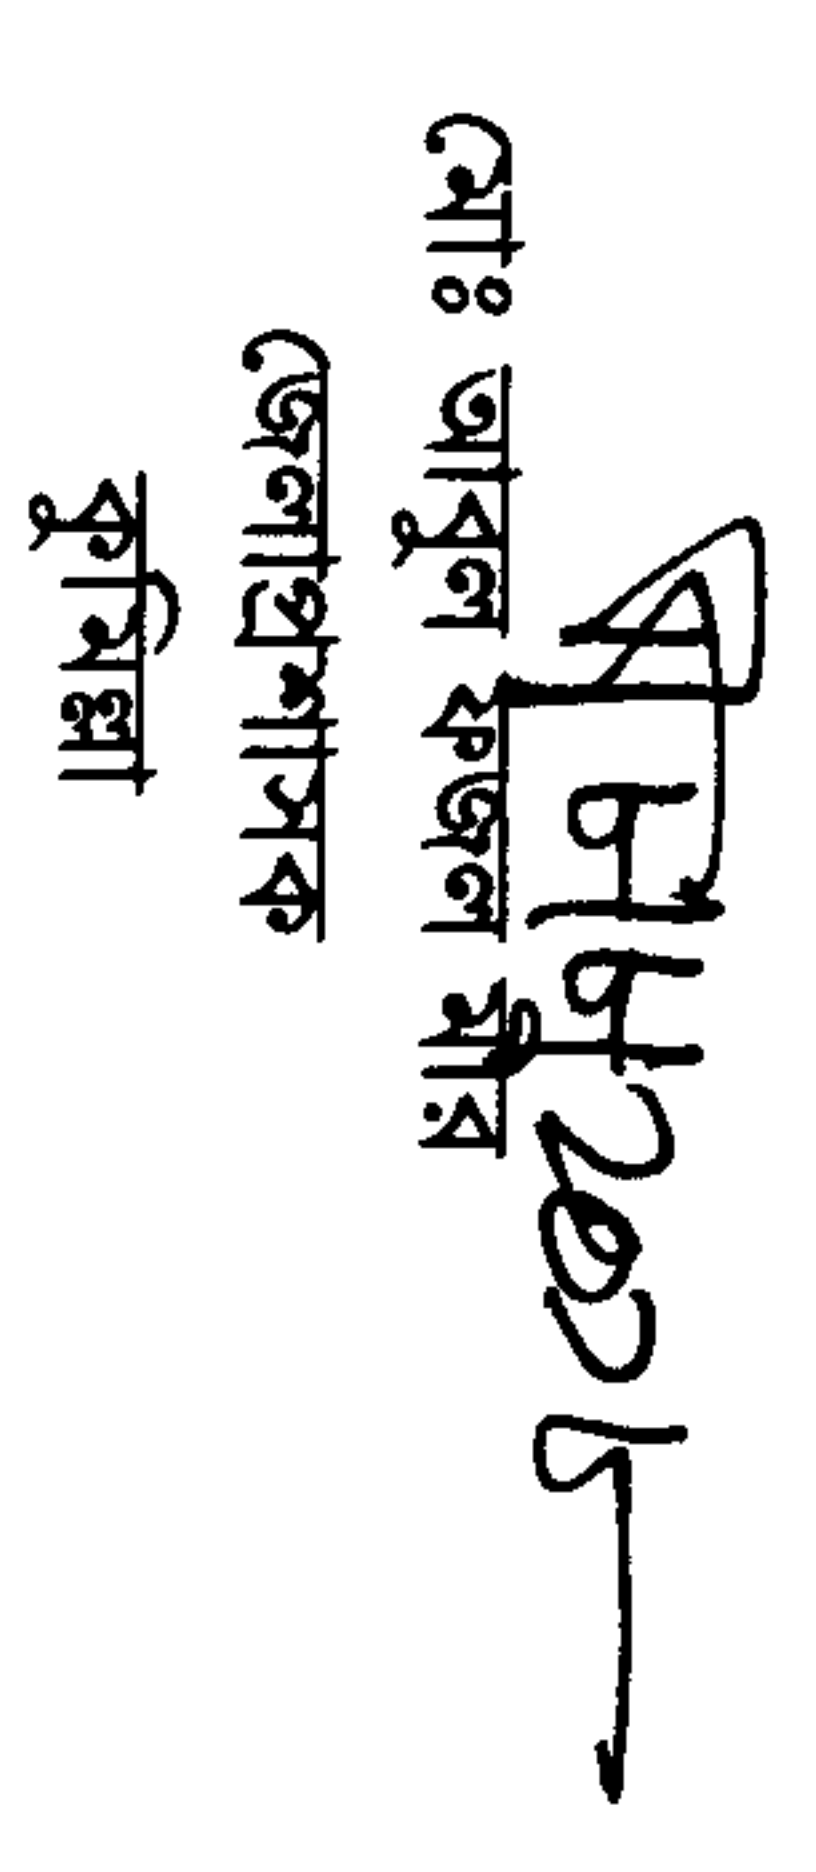 মোঃ আবুল ফজল মীর
জেলা প্রশাসক
কুমিল্লা